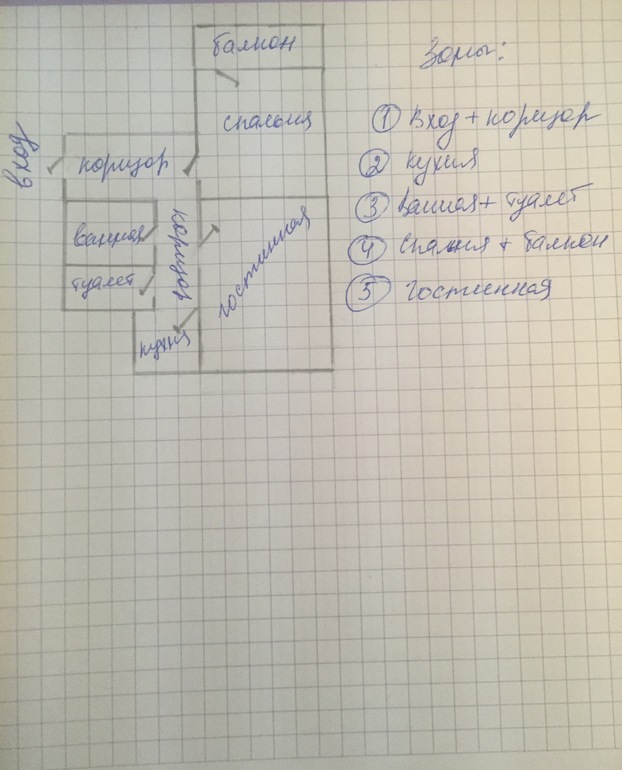 балкон
спальня
вход
коридор
ванная
туалет
коридор
гостинная
кухня
Зоны:
① Вход + коридор
② Кухня
③ Ванная + туалет
④ Спальня + балкон
⑤ Гостинная